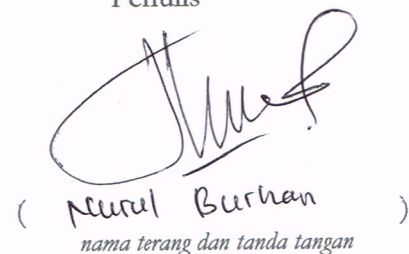 Penulis
( Nurul Burhan )
nama terang dan tanda tangan